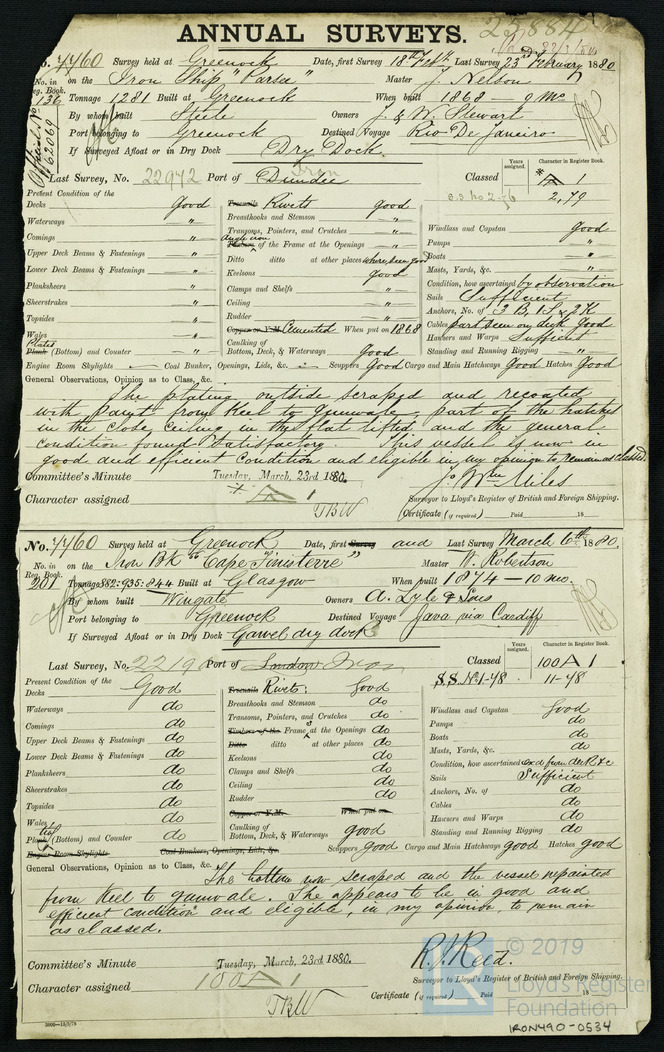 ANNUAL SURVEYS.
No. 7760 Survey held at Greenock Date, first Survey 18th Feby Last Survey 23rd February 1880
No. in Reg. Book. 136 on the Iron Ship "Parsee" Master J. Nelson
Tonnage 1281 Built at Greenock When built 1868 - 9 Mo
By whom built Steele Owners J. & W. Stewart
Port belonging to Greenock Destined Voyage Rio De Janeiro
If Surveyed Afloat or in Dry Dock Dry Dock.
Official No 62069
Iron
Last Survey, No. 22972 Port of Dundee Classed Years assigned Character in Register Book.
A 1
2,79
s.s. No 2-76
Present Condition of the
Decks good Treenails Rivets good
Waterways " Breasthooks and Stemson " Windlass and Capstan good
Comings " Transoms, Pointers, and Crutches " Pumps "
Upper Deck Beams & Fastenings " Angle iron of the Frame at the Openings " Boats "
Lower Deck Beams & Fastenings " Ditto ditto at other places where seen good Masts, Yards, &c. "
Planksheers " Keelsons good Condition, how ascertained by observation
Sheerstrakes " Clamps and Shelfs " Sails Sufficient
Topsides " Ceiling " Anchors, No. of 3 B, 1 S & 2 K
Wales " Rudder " Cables part seen on deck good
Plated Plank (Bottom) and Counter " Copper or Y.M. Cemented When put on 1868 Hawsers and Warps Sufficient
Caulking of Bottom, Deck, & Waterways good Standing and Running Rigging "
Engine Room Skylights — Coal Bunker, Openings, Lids, &c. — Scuppers Good Cargo and Main Hatchways Good Hatches Good
General Observations, Opinion as to Class, &c.
The plating outside scraped and recoated
with paint from Keel to gunwale, part of the hatches
in the close ceiling in the flat lifted and the general
condition found satisfactory. This vessel is now in
good and efficient condition and eligible in my opinion to remain as classed.
Committee's Minute Tuesday, March, 23rd 1880. Jo Wm Miles
Character assigned A 1 Surveyor to Lloyd's Register of British and Foreign Shipping.
TBW Certificate (if required) Paid 18
No. 7760 Survey held at Greenock Date, first Survey and Last Survey March 6th 1880.
No. in Reg. Book. 201 on the Iron Bk "Cape Finisterre" Master W. Robertson
Tonnage 882.935.844 Built at Glasgow When built 1874 - 10 mo.
By whom built Wingate Owners A. Lyle & Sons
Port belonging to Greenock Destined Voyage Java via Cardiff
If Surveyed Afloat or in Dry Dock Garvel dry dock
Last Survey, No. 2219 Port of London Iron Classed Years assigned Character in Register Book.
100 A 1
S.S. No 1-78 11-78
Present Condition of the
Decks Good Treenails Rivets: Good
Waterways do Breasthooks and Stemson do Windlass and Capstan Good
Comings do Transoms, Pointers, and Crutches do Pumps do
Upper Deck Beams & Fastenings do Timbers of the Frames at the Openings do Boats do
Lower Deck Beams & Fastenings do Ditto ditto at other places do Masts, Yards, &c. do
Planksheers do Keelsons do Condition, how ascertained
Sheerstrakes do Clamps and Shelfs do Sails Sufficient
Topsides do Ceiling do Anchors, No. of do
Wales do Rudder do Cables do
Plank (Bottom) and Counter do Copper or Y.M. When put on Hawsers and Warps do
Caulking of Bottom, Deck, & Waterways good Standing and Running Rigging do
Engine Room Skylights Coal Bunkers, Openings, Lids, &c. Scuppers good Cargo and Main Hatchways good Hatches good
General Observations, Opinion as to Class, &c.
The bottom now scraped and the vessel repainted
from Keel to gunwale. She appears to be in good and
efficient condition and eligible, in my opinion, to remain
as classed.
Committee's Minute Tuesday, March, 23rd 1880. R. J. Reed.
Character assigned 100 A 1 Surveyor to Lloyd's Register of British and Foreign Shipping.
TBW Certificate (if required) Paid 18
© 2019
Lloyd's Register
Foundation
IRON490-0534